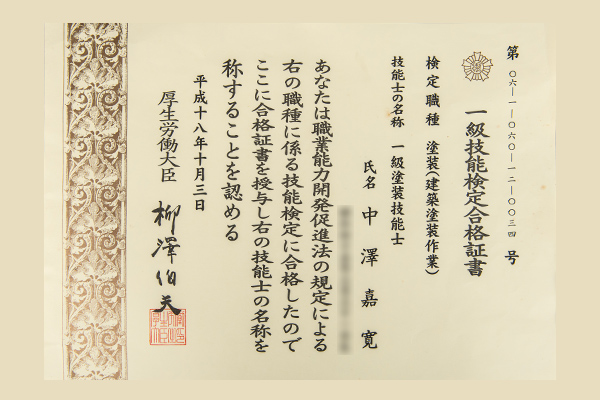 第 〇六-一-〇六〇-一二-〇〇三四 号
一級技能検定合格証書
検定職種 塗装(建築塗装作業)
技能士の名称 一級塗装技能士
氏名 中澤嘉寛
あなたは職業能力開発促進法の規定による
右の職種に係る技能検定に合格したので
ここに合格証書を授与し右の技能士の名称を
称することを認める
平成十八年十月三日
厚生労働大臣 柳澤伯夫